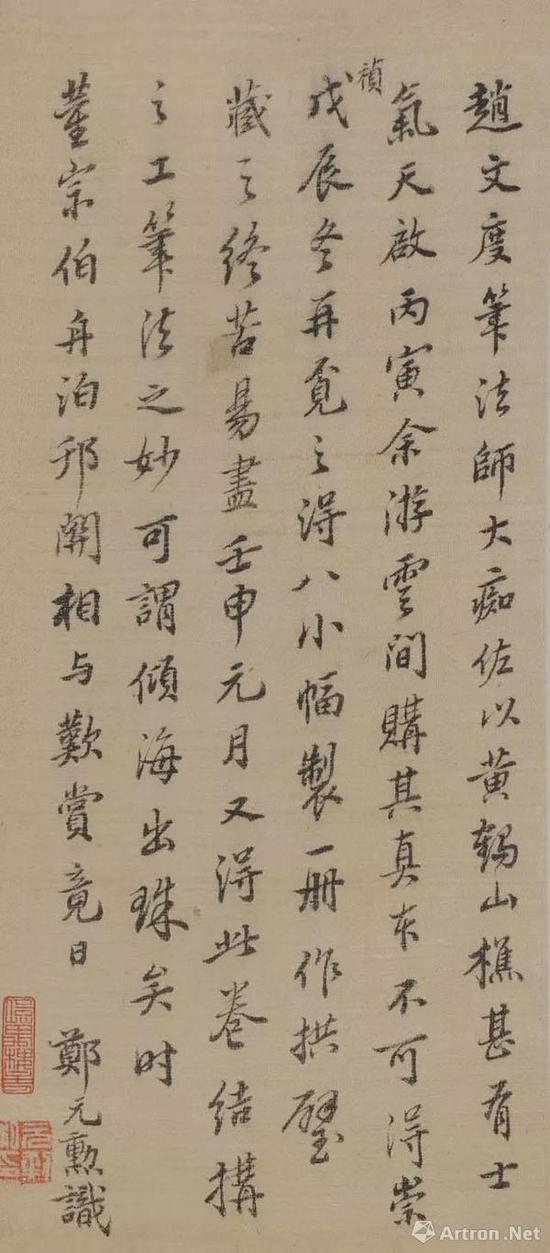 趙文度筆法師大痴佐以黄鶴山樵甚有士
氣天啟丙寅余游雲間購其真本不可得崇
禎
戊辰冬再覓之得八小幅製一册作拱璧
藏之終苦易盡壬申元月又得此卷結搆
之工筆法之妙可謂傾海出珠矣时
董宗伯舟泊邗關相与歎賞竟日 鄭元勲識
Artron.Net